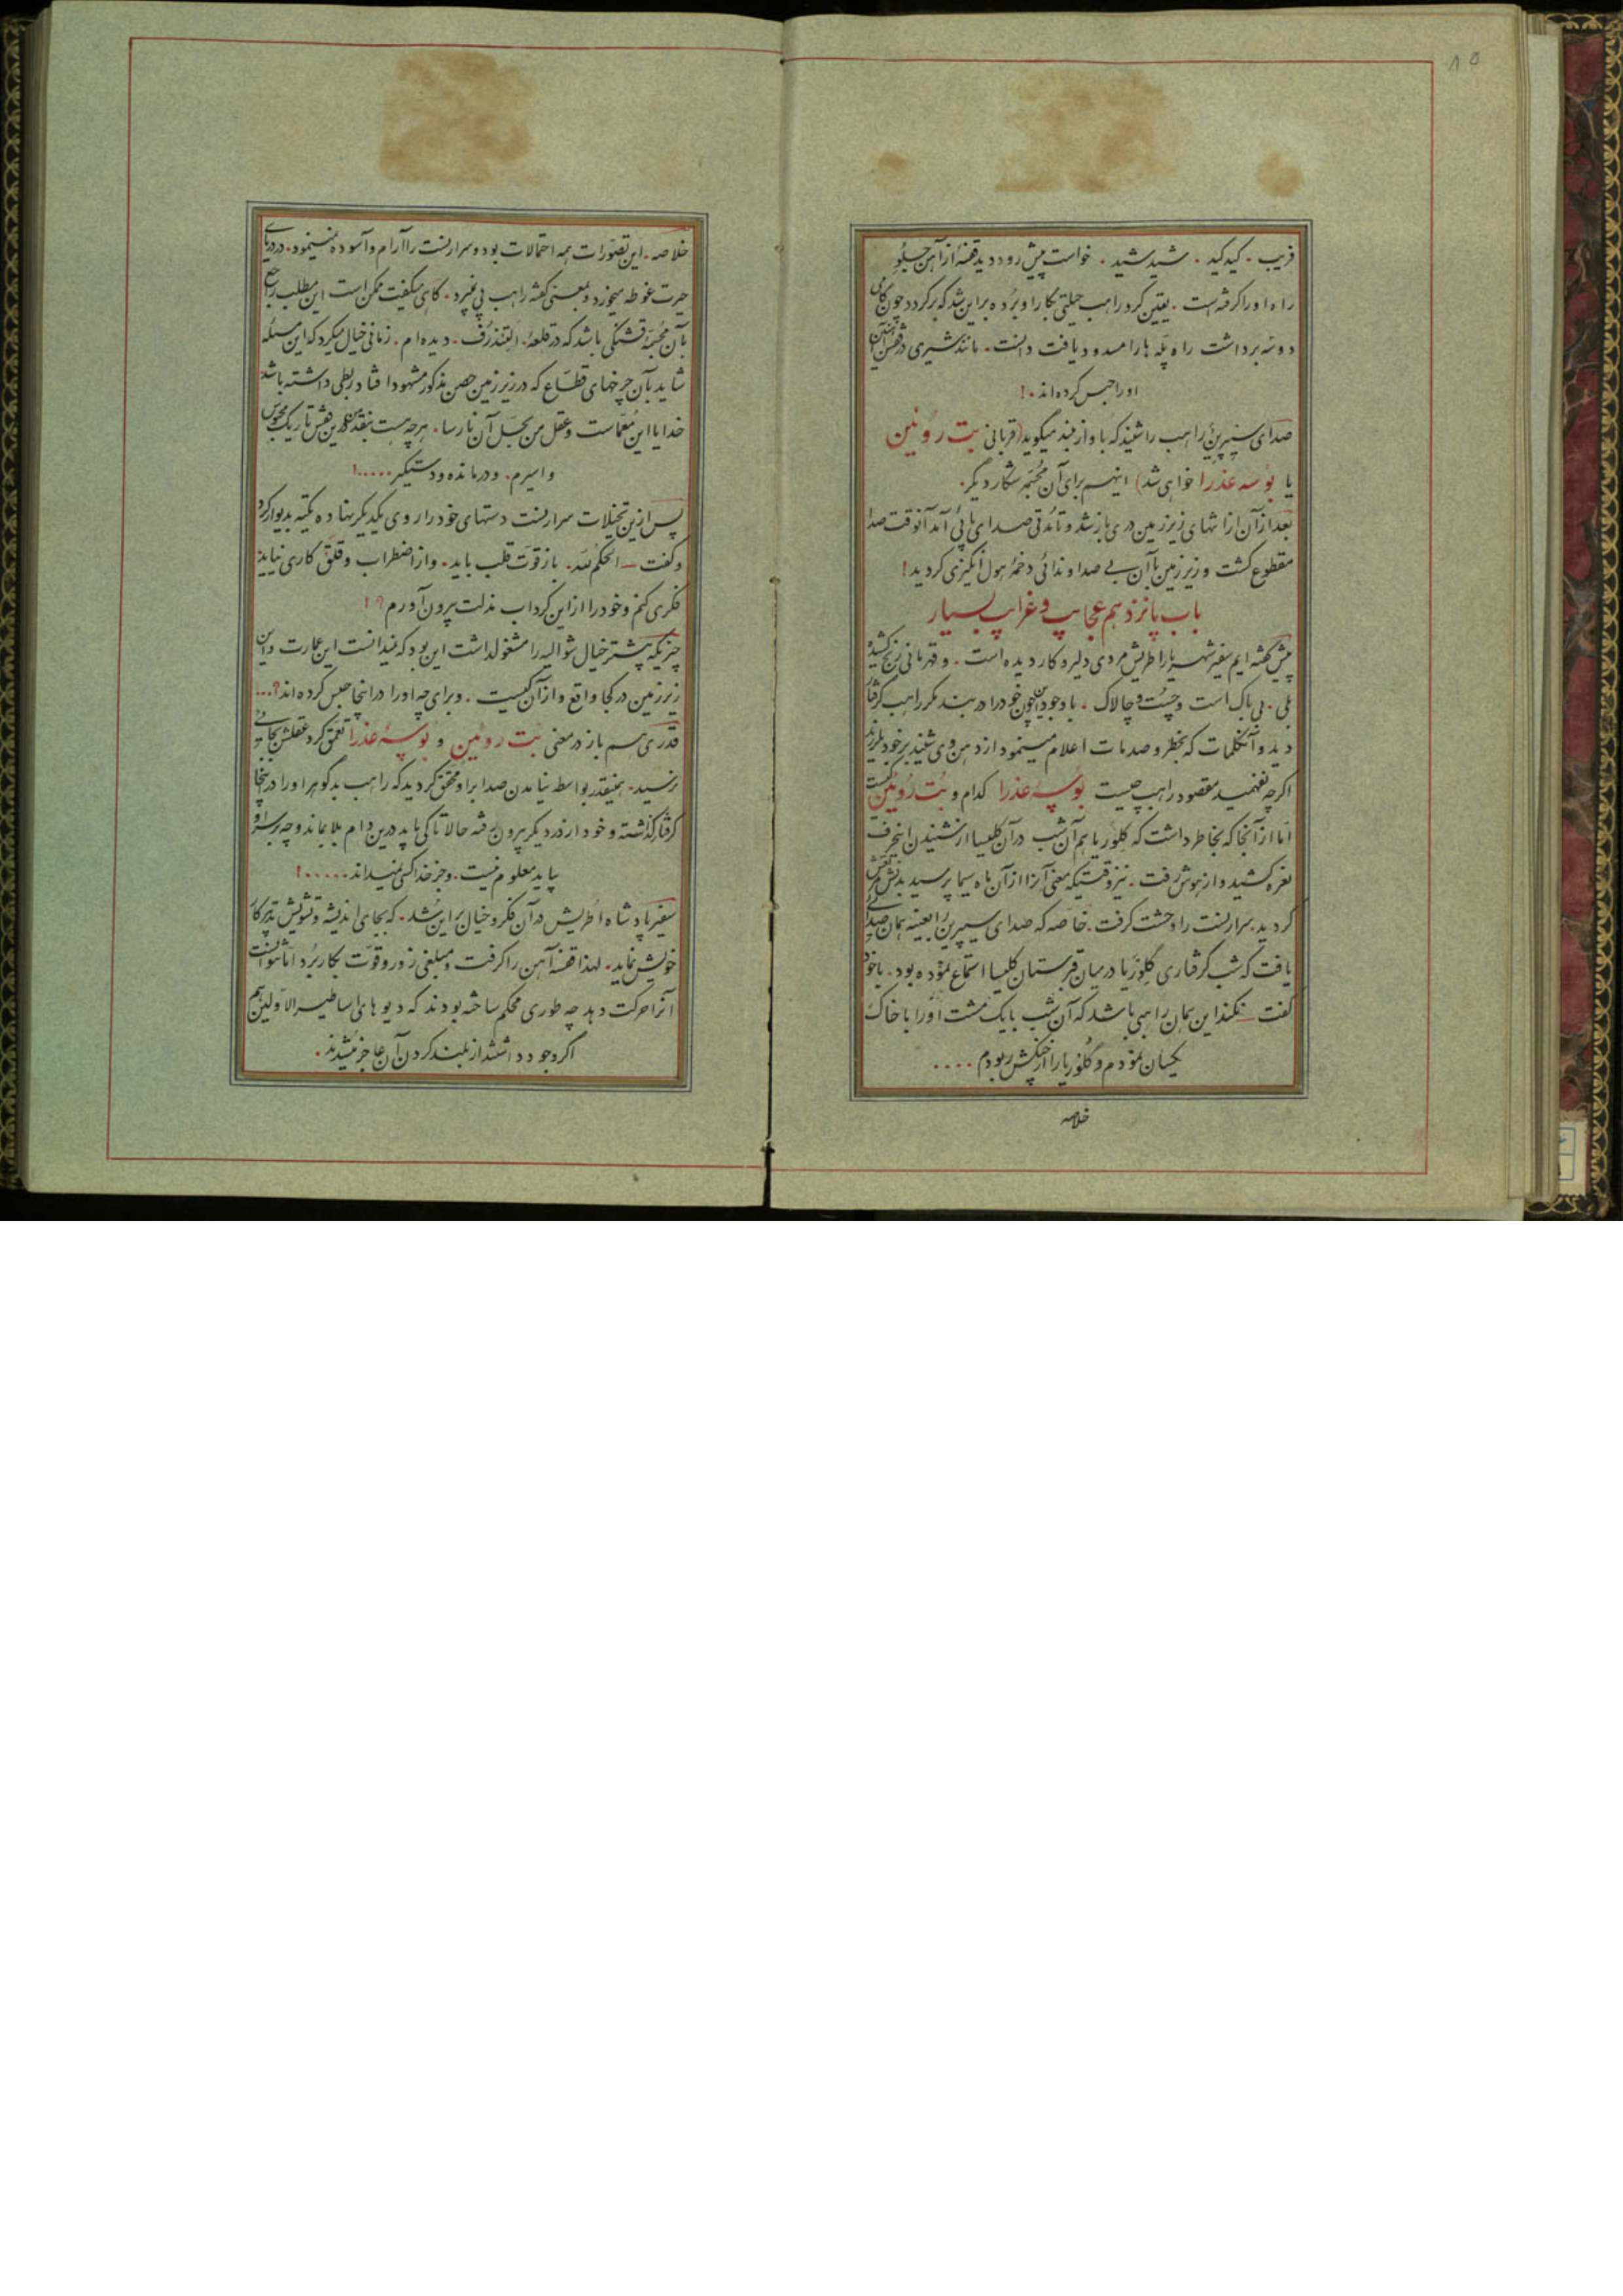 ۸۵
فریب . کید کید . شید شید . خواست پیش رود دید قفسهٔ از آهن جلو
راه او را گرفته است . یقین کرد راهب حیلتی بکار او برده بر این شد که برگردد چون گامی
دو سه برداشت راه پله ها را مسدود یافت دانست . مانند شیری در قفس آهنین
او را حبس کرده‌اند . !
صدای سیپرین راهب را شنید که با واز بلند میگوید (قربانی بت روئین
یا بوسه عذرا خواهی شد) اینهم برای آن مجمر شکار دیگر .
بعد از آن از انتهای زیرزمین دری باز شد و تا مدتی صدای پائی آمد آنوقت صدا
مقطوع گشت و زیرزمین با آن بی صدا و ندائی دخمهٔ هول انگیزی گردید !
باب پانزدهم عجایب و غرایب بسیار
پیش گفته ایم سفیر شهریار اطریش مردی دلیر و کار دیده است . و قهرمانی رنج کشیده
بلی . بی باک است و چست و چالاک . با وجود این چون خود را در بند مکر راهب گرفتار
دید و آن کلمات که بخطر و صدمات اعلام مینمود از دهن وی شنید بر خود بلرزید
اگرچه نفهمید مقصود راهب چیست بوسهٔ عذرا کدام و بت روئین کیست
اما از آنجا که بخاطر داشت که گلوریا هم آن شب در آن کلیسا از شنیدن اینحرف
نعره کشید و از هوش رفت . نیز وقتیکه معنی آنرا از آن ماه سیما پرسید بدنش مرتعش
گردید . سرارنست را وحشت گرفت . خاصه که صدای سیپرین را بعینه همان صدائی
یافت که شب گرفتاری گلوریا در میان قبرستان کلیسا استماع نموده بود . با خود
گفت نکند این همان راهبی باشد که آن شب با یک مشت او را با خاک
یکسان نمودم و گلوریا را از چنگش ربودم ....
خلاصه
خلاصه . این تصورات همه احتمالات بود و سرارنست را آرام و آسوده نمینمود . در دریای
حیرت غوطه میخورد و بمعنی گفته راهب پی نمیبرد . گاهی میگفت ممکن است این مطلب راجع
بآن مجسمه قشنگی باشد که در قلعهٔ . التندرف . دیده ام . زمانی خیال میکرد که این مسئله
شاید بآن چرخهای قطاع که در زیرزمین حصن مذکور مشهود افتاد ربطی داشته باشد
خدایا این معماست و عقل من بحل آن نارسا . هرچه هست بنقد من در این قفس تاریک محبوس
و اسیرم . و درمانده و دستگیر ..... !
پس از این تخیلات سرارنست دستهای خود را روی یکدیگر نهاده تکیه بدیوار کرد
و گفت الحکم لله . باز قوت قلب باید . و از اضطراب و قلق کاری نیاید
فکری کنم و خود را از این گرداب مذلت بیرون آورم ؟ !
چیزیکه بیشتر خیال شوالیه را مشغول داشت این بود که نمیدانست این عمارت و این
زیرزمین در کجا واقع و از آن کیست . و برای چه او را در اینجا حبس کرده‌اند ؟ ...
قدری هم باز در معنی بت روئین و بوسهٔ عذرا تعمق کرد عقلش بجائی
نرسید . همینقدر بواسطه نیامدن صدا بر او محقق گردید که راهب بدگوهر او را در اینجا
گرفتار گذاشته و خود از در دیگر بیرون رفته حالا تا کی باید در این دام بلا بماند و چه بر سر او
بیاید معلوم نیست . و جز خدا کسی نمیداند ..... !
سفیر پادشاه اطریش در آن فکر و خیال بر این شد . که بجای اندیشه و تشویش تدبیر کار
خویش نماید . لهذا قفسهٔ آهن را گرفت و مبلغی زور و قوت بکار برد اما نتوانست
آنرا حرکت دهد چه طوری محکم ساخته بودند که دیوهای اساطیر الاولین هم
اگر وجود داشتند از بلند کردن آن عاجز میشدند .